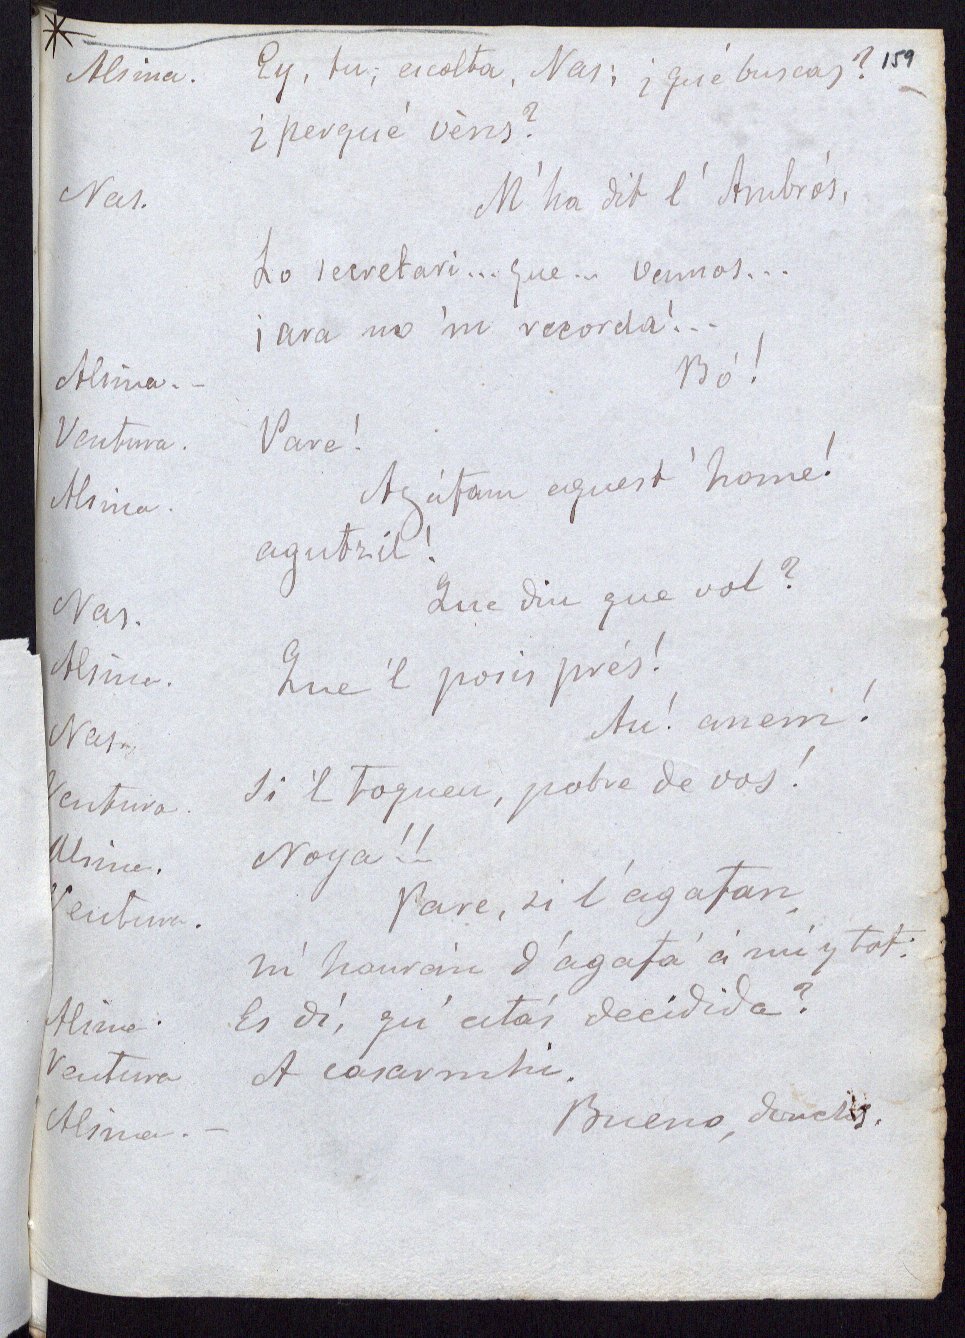 159
Alsina. Ey, tu; escolta, Nas; ¿qué buscas?
¿perqué vèns?
Nas. M'ha dit l'Ambrós,
Lo secretari... que... vamos...
¡ara no 'm recorda!...
Alsina.- Bó!
Ventura. Pare!
Alsina. Agáfam aquest home!
agutzil!
Nas. Que diu que vol?
Alsina. Que 'l posis prés!
Nas. Au! anem!
Ventura. Si 'l toqueu, pobre de vos!
Alsina. Noya!!
Ventura. Pare, si l'agafan,
m'haurán d'agafá á mí y tot.
Alsina. Es dí, qu'estás decidida?
Ventura A casarmhi.
Alsina.- Bueno, donchs.